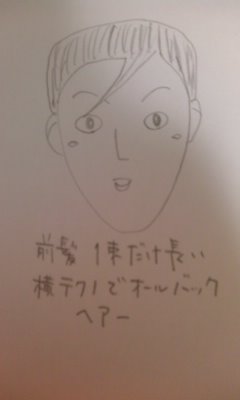 前髪 1束だけ長い
横テクノでオールバック
ヘアー